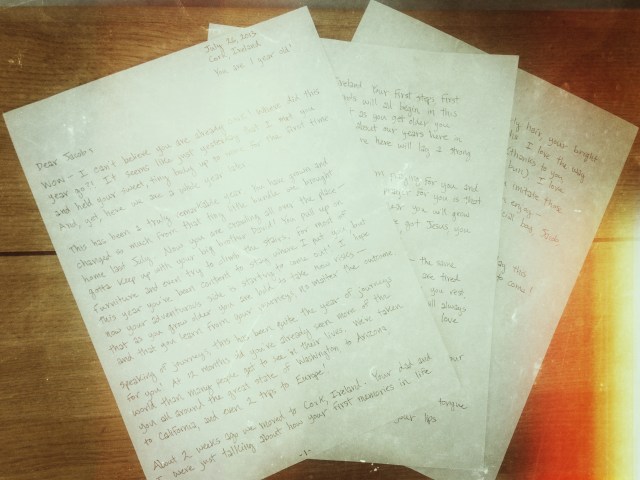 July 2013
Cork, Ireland
You are 1 year old!
Dear Jacob,
WOW - I can't believe you are already one! Where did this
year go?! It seems like just yesterday that I met you
and held your sweet, tiny baby up to mine for the first time
And, yet, here we are a whole year
This has been a truly remarkable year. You have grown and
changed so much from that tiny little bundle we brought
home last July. Now you are crawling all over the place -
gotta keep up with your big brother David! You pull up on
furniture and even try to climb the stairs. For most of
this year you've been content to stay where I put you but
now your adventurous side is starting to come out! I hope
that as you grow older you are bold to take new risks -
and that you learn from your journey, no matter the outcome
Speaking of journeys, this has been quite the year of journeys
for you. At 12 months old you've already seen more of the
world than many people get to see in their lives. We've taken
you all around the great state of Washington to Arizona
to California and even 2 trips to Europe!
About 2 weeks ago we moved to Cork, Ireland. Your dad and
I were just talking about how your first memories in life
-1-
Ireland. Your first step, first
will all begin in this
as you get older you
about our years here in
me here will lay a strong
praying for you and
prayer for you is that
year you will grow
got Jesus, you
- the same
are tired
you rest,
ll always
love
your
tongue
your lips
hair, your bright
I love the way
(thanks to you
I love
imitate those
enjoy -
boy, Jacob
say this
to come!